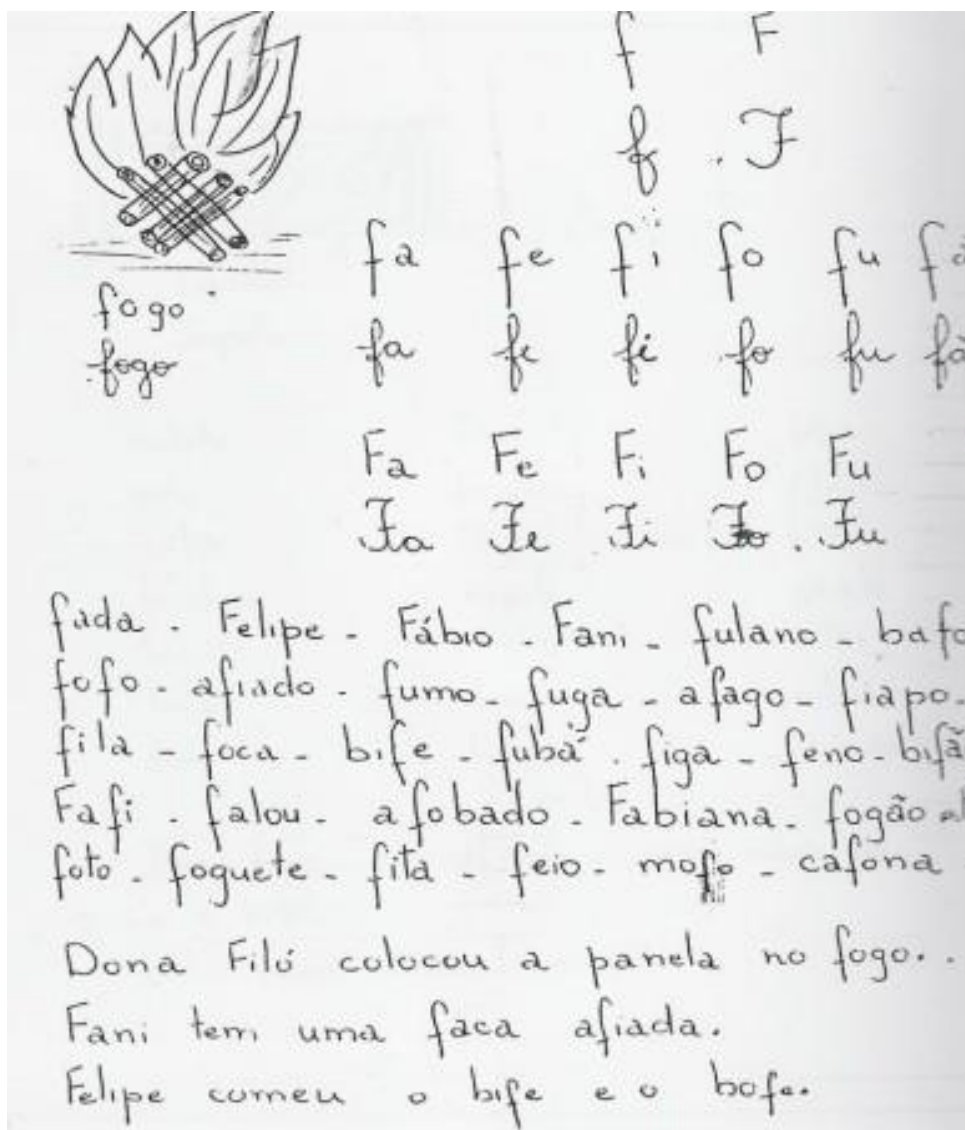 f F
f F
fa fe fi fo fu
fogo
fogo
fa fe fi fo fu
Fa Fe Fi Fo Fu
Fa Fe Fi Fo Fu
fada - Felipe - Fábio - Fani - fulano - bafo
fofo - afiado - fumo - fuga - afago - fiapo -
fila - foca - bife - fubá - figa - feno -
Fafi - falou - afobado - Fabiana - fogão
foto - foguete - fita - feio - mofo - cafona
Dona Filó colocou a panela no fogo.
Fani tem uma faca afiada.
Felipe comeu o bife e o bofe.